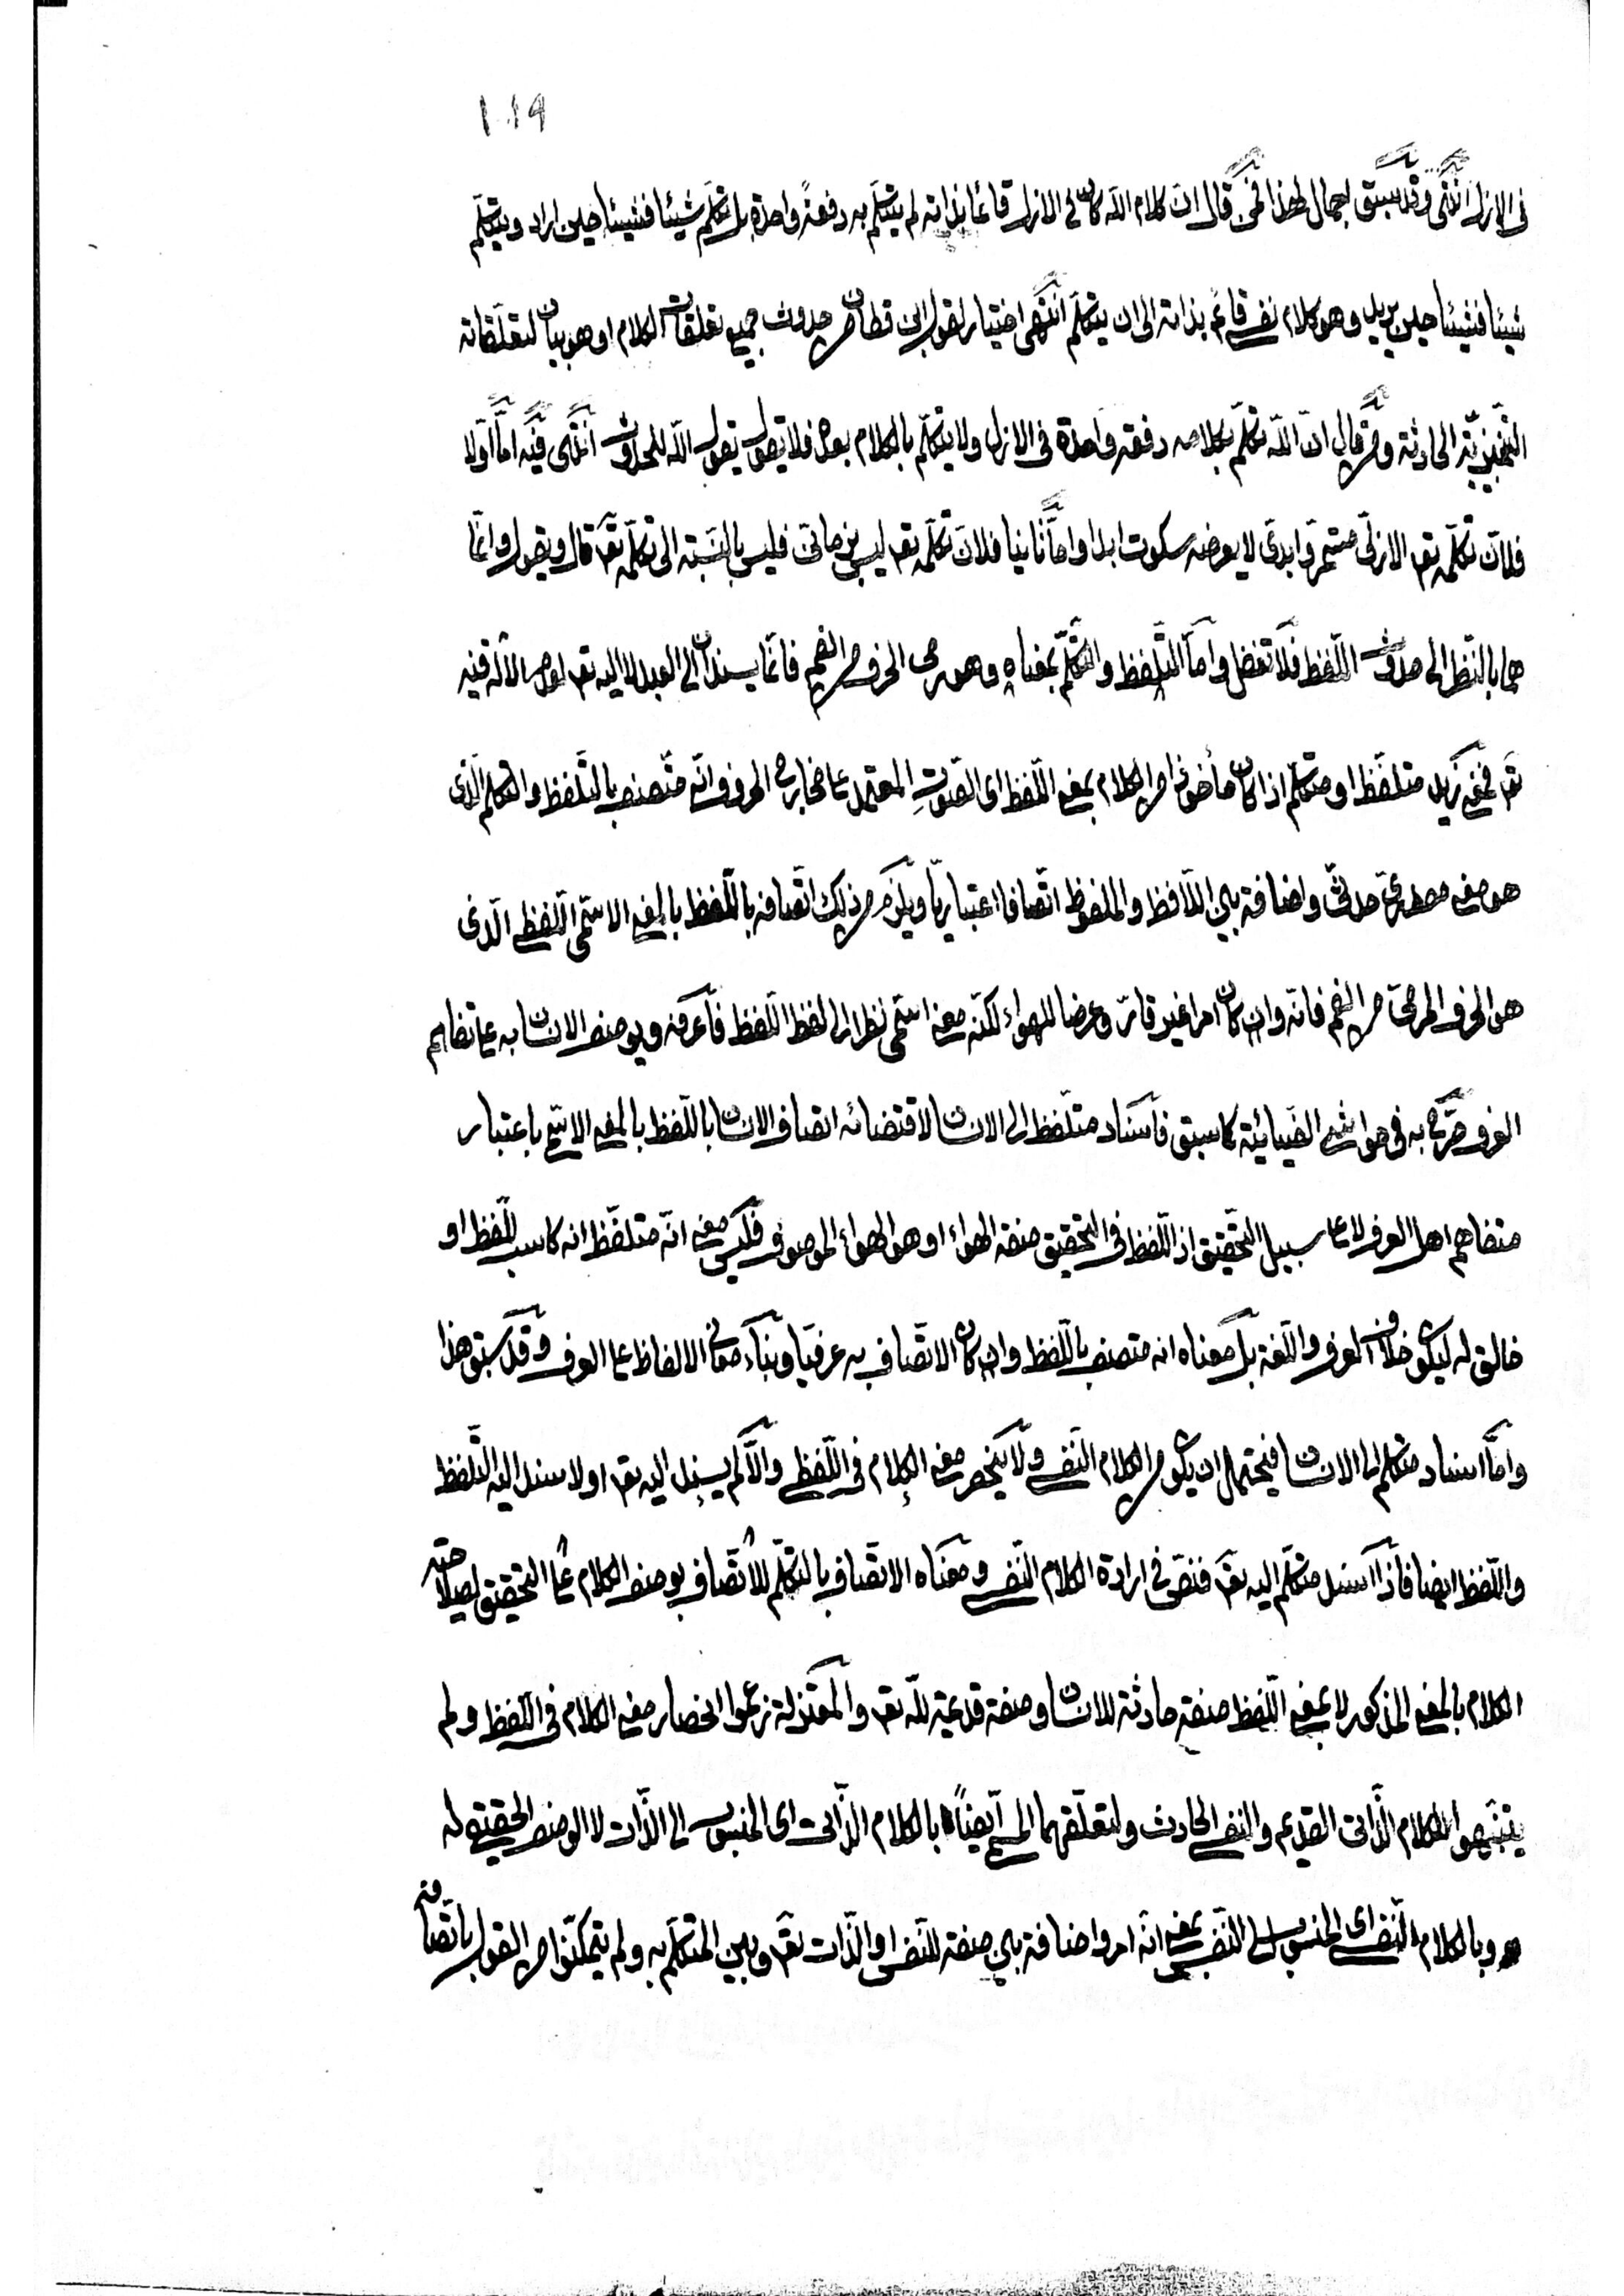 في الازل انتهى وقد سبق اجمال لهذا فمن قال ان كلام الله كان في الازل قائما بذاته لم يتكلم به دفعة واحدة بل تكلم شيئا فشيئا حين اراد ويتكلم
شيئا فشيئا حين يريد وهو كلام نفسي قائم بذاته الى ان يتكلم انتهى اختيار لقول ابن قطان من حدوث جميع تعلقات الكلام او هو بيان لتعلقاته
التنجيزية الحادثة ومن قال ان الله تكلم بكلامه دفعة واحدة في الازل ولا يتكلم بالكلام بعده فلا تقول يقول الله للحدوث انتهى ففيه اما اولا
فلان تكلمه تع الازلي مستمر وابدي لا يعرضه سكوت ابدا واما ثانيا فلان تكلمه تع ليس بزماني فليس بالنسبة الى تكلمه تع قال ويقول وانما
هما بالنظر الى حدوث اللفظ فلا تغفل واما التلفظ والتكلم بمعناه وهو رمي الحرف من الفم فانما يسندان الى العبد لا اليه تع لعدم الالة فيه
تع فمعنى زيد متلفظ او متكلم اذا كان مأخوذا من الكلام بمعنى اللفظ اى الصوت المعتمد على مخارج الحروف انه متصف بالتلفظ والتكلم الذي
هو معنى مصدري حدثي واضافة بين اللافظ والملفوظ اتصافا اعتباريا ويلزم من ذلك اتصافه باللفظ بالمعنى الاسمي اللفظي الذي
هو الحرف المرمي من الفم فانه وان كان امرا غير قار وعرضا للهواء لكنه معنى اسمي نظرا الى لفظ اللفظ فاعرفه ويوصف الانسان به على تفاهم
العرف صرح به في حواشي الضيائية كما سبق فاسناد متلفظ الى الانسان لاقتضائه اتصاف الانسان باللفظ بالمعنى الاسمي باعتبار
متفاهم اهل العرف لا على سبيل التحقيق اذ اللفظ في التحقيق صفة الهواء او هو الهواء الموصوف فليس معنى انه متلفظ انه كاسب للفظ او
خالق له ليكون خلاف العرف واللغة بل معناه انه متصف باللفظ وان كان الاتصاف به عرفيا وبناء معاني الالفاظ على العرف وقد سبق هذا
واما اسناد متكلم الى الانسان فيحتمل ان يكون من الكلام النفسي ولا ينحصر معنى الكلام في اللفظي والا لم يسند اليه تع او لا يسند اليه التلفظ
واللفظ ايضا فاذا اسند متكلم اليه تع فنص في ارادة الكلام النفسي ومعناه الاتصاف بالتكلم للاتصاف بوصف الكلام على التحقيق لصلاحية
الكلام بالمعنى المذكور لا بمعنى اللفظ صفة حادثة للانسان وصفة قديمة لله تع والمعتزلة زعموا انحصار معنى الكلام في اللفظ ولم
يتنبهوا للكلام الذاتي القديم والنفسي الحادث ولتعلقهما المسمى ايضا بالكلام الذاتي اى المنسوب الى الذات لا الوصف الحقيقي له
وبالكلام النفسي اى المنسوب الى النفس بمعنى انه امر واضافة بين صفة للنفس او الذات تع وبين المتكلم به ولم يتمكنوا من القول باتصافه